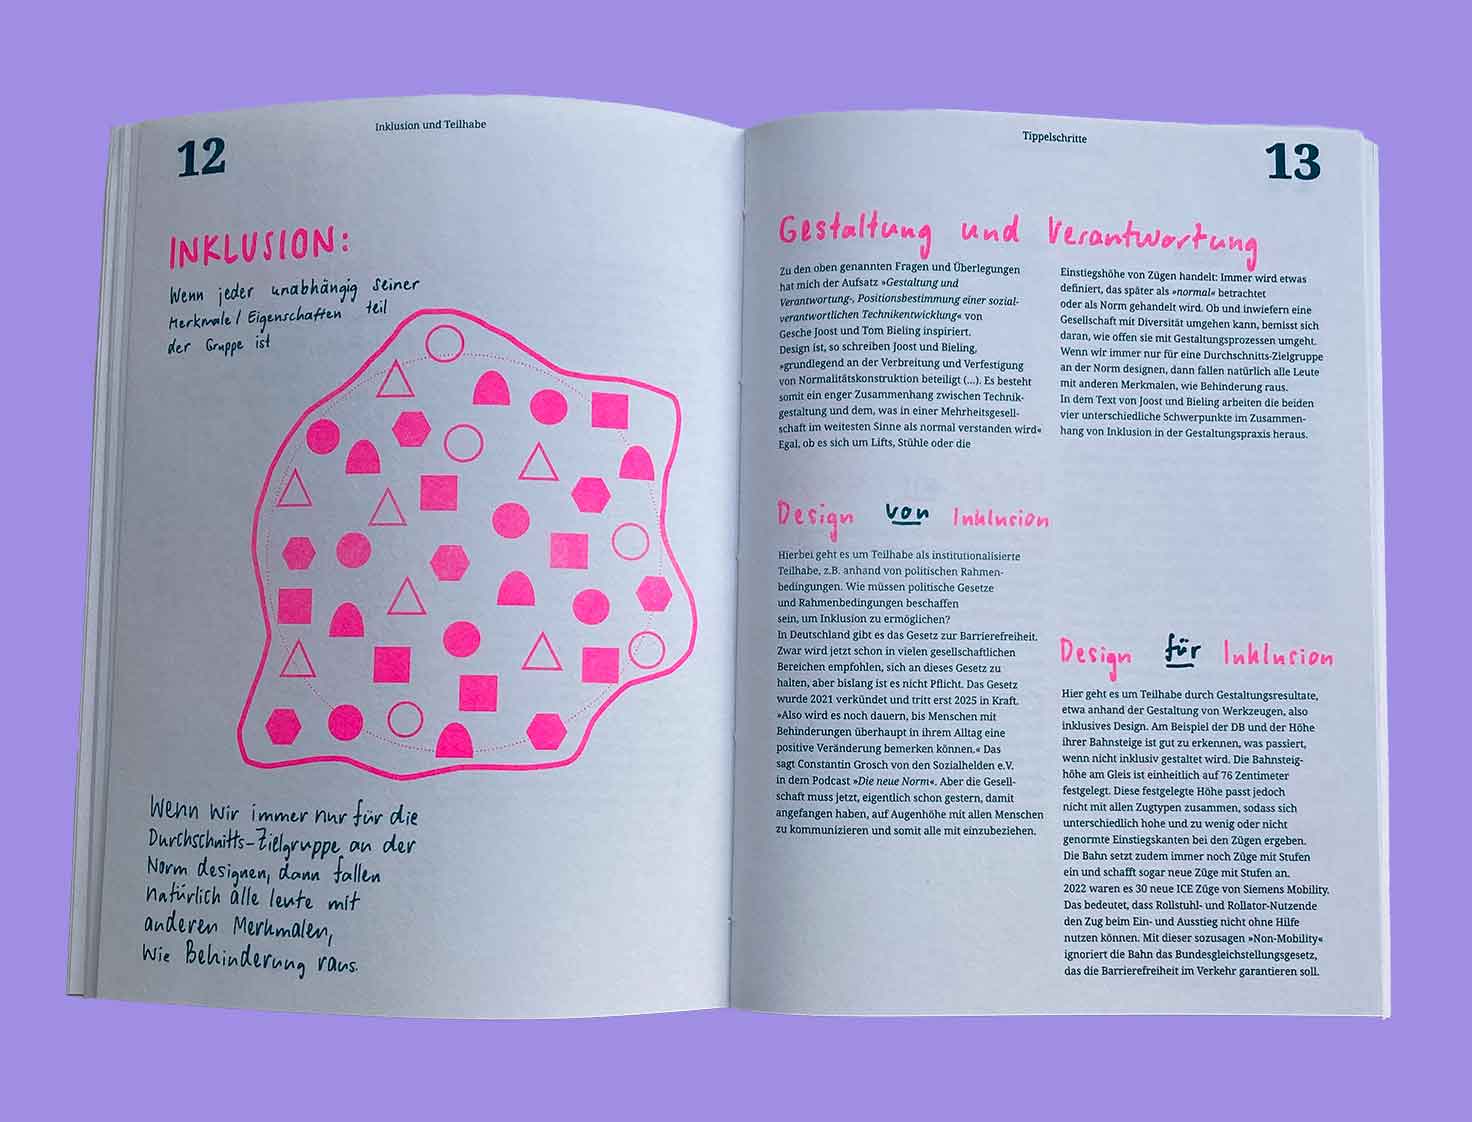 12
Inklusion und Teilhabe
INKLUSION:
Wenn jeder unabhängig seiner
Merkmale/Eigenschaften teil
der Gruppe ist
Wenn wir immer nur für die
Durchschnitts-Zielgruppe an der
Norm designen, dann fallen
natürlich alle leute mit
anderen Merkmalen,
wie Behinderung raus.
Tippelschritte
13
Gestaltung und Verantwortung
Zu den oben genannten Fragen und Überlegungen
hat mich der Aufsatz »Gestaltung und
Verantwortung-, Positionsbestimmung einer sozial-
verantwortlichen Technikentwicklung« von
Gesche Joost und Tom Bieling inspiriert.
Design ist, so schreiben Joost und Bieling,
»grundlegend an der Verbreitung und Verfestigung
von Normalitätskonstruktion beteiligt (...). Es besteht
somit ein enger Zusammenhang zwischen Technik-
gestaltung und dem, was in einer Mehrheitsgesell-
schaft im weitesten Sinne als normal verstanden wird«
Egal, ob es sich um Lifts, Stühle oder die
Einstiegshöhe von Zügen handelt: Immer wird etwas
definiert, das später als »normal« betrachtet
oder als Norm gehandelt wird. Ob und inwiefern eine
Gesellschaft mit Diversität umgehen kann, bemisst sich
daran, wie offen sie mit Gestaltungsprozessen umgeht.
Wenn wir immer nur für eine Durchschnitts-Zielgruppe
an der Norm designen, dann fallen natürlich alle Leute
mit anderen Merkmalen, wie Behinderung raus.
In dem Text von Joost und Bieling arbeiten die beiden
vier unterschiedliche Schwerpunkte im Zusammen-
hang von Inklusion in der Gestaltungspraxis heraus.
Design von Inklusion
Hierbei geht es um Teilhabe als institutionalisierte
Teilhabe, z.B. anhand von politischen Rahmen-
bedingungen. Wie müssen politische Gesetze
und Rahmenbedingungen beschaffen
sein, um Inklusion zu ermöglichen?
In Deutschland gibt es das Gesetz zur Barrierefreiheit.
Zwar wird jetzt schon in vielen gesellschaftlichen
Bereichen empfohlen, sich an dieses Gesetz zu
halten, aber bislang ist es nicht Pflicht. Das Gesetz
wurde 2021 verkündet und tritt erst 2025 in Kraft.
»Also wird es noch dauern, bis Menschen mit
Behinderungen überhaupt in ihrem Alltag eine
positive Veränderung bemerken können.« Das
sagt Constantin Grosch von den Sozialhelden e.V.
in dem Podcast »Die neue Norm«. Aber die Gesell-
schaft muss jetzt, eigentlich schon gestern, damit
angefangen haben, auf Augenhöhe mit allen Menschen
zu kommunizieren und somit alle mit einzubeziehen.
Design für Inklusion
Hier geht es um Teilhabe durch Gestaltungsresultate,
etwa anhand der Gestaltung von Werkzeugen, also
inklusives Design. Am Beispiel der DB und der Höhe
ihrer Bahnsteige ist gut zu erkennen, was passiert,
wenn nicht inklusiv gestaltet wird. Die Bahnsteig-
höhe am Gleis ist einheitlich auf 76 Zentimeter
festgelegt. Diese festgelegte Höhe passt jedoch
nicht mit allen Zugtypen zusammen, sodass sich
unterschiedlich hohe und zu wenig oder nicht
genormte Einstiegskanten bei den Zügen ergeben.
Die Bahn setzt zudem immer noch Züge mit Stufen
ein und schafft sogar neue Züge mit Stufen an.
2022 waren es 30 neue ICE Züge von Siemens Mobility.
Das bedeutet, dass Rollstuhl- und Rollator-Nutzende
den Zug beim Ein- und Ausstieg nicht ohne Hilfe
nutzen können. Mit dieser sozusagen »Non-Mobility«
ignoriert die Bahn das Bundesgleichstellungsgesetz,
das die Barrierefreiheit im Verkehr garantieren soll.